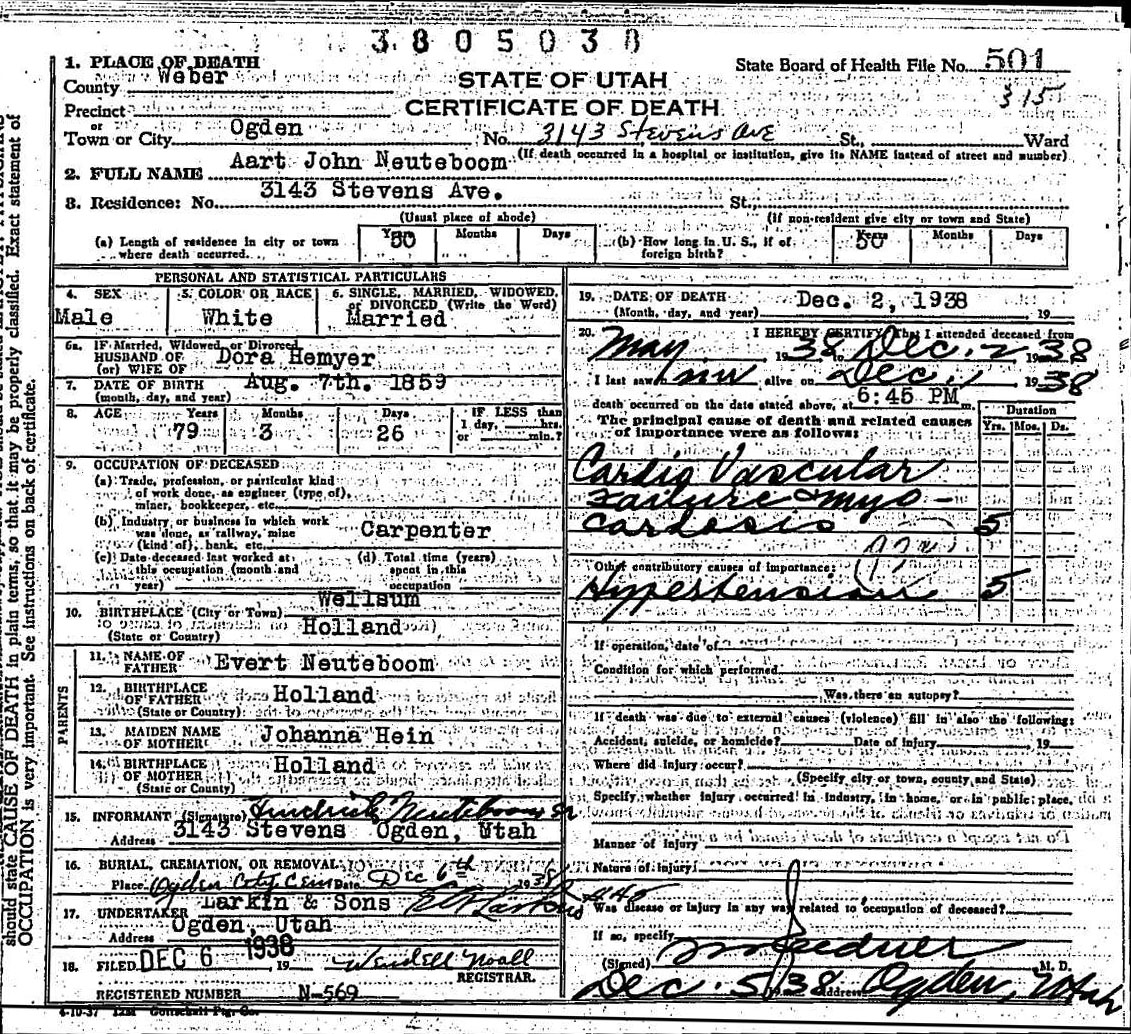 3805038
1. PLACE OF DEATH
County Weber
STATE OF UTAH
CERTIFICATE OF DEATH
State Board of Health File No. 501
315
Precinct
or
Town or City Ogden No. 3143 Stevens Ave St., Ward
(If death occurred in a hospital or institution, give its NAME instead of street and number)
2. FULL NAME Aart John Neuteboom
3. Residence: No. 3143 Stevens Ave. St.,
(Usual place of abode) (If non-resident give city or town and State)
(a) Length of residence in city or town where death occurred. Years 50 Months Days
(b) How long in U. S., if of foreign birth? Years 50 Months Days
PERSONAL AND STATISTICAL PARTICULARS
4. SEX Male
5. COLOR OR RACE White
6. SINGLE, MARRIED, WIDOWED, or DIVORCED (Write the Word) Married
6a. IF Married, Widowed, or Divorced
HUSBAND OF
(or) WIFE OF Dora Hemyer
7. DATE OF BIRTH Aug. 7th. 1859
(month, day, and year)
8. AGE Years 79 Months 3 Days 26 IF LESS than 1 day, hrs. or min.?
9. OCCUPATION OF DECEASED
(a) Trade, profession, or particular kind
of work done, as engineer (type of),
miner, bookkeeper, etc.
(b) Industry or business in which work
was done, as railway, mine
(kind of), bank, etc. Carpenter
(c) Date deceased last worked at
this occupation (month and
year)
(d) Total time (years)
spent in this
occupation
10. BIRTHPLACE (City or Town) Wellsum
(State or Country) Holland
PARENTS
11. NAME OF FATHER Evert Neuteboom
12. BIRTHPLACE OF FATHER Holland
(State or Country)
13. MAIDEN NAME OF MOTHER Johanna Hein
14. BIRTHPLACE OF MOTHER Holland
(State or County)
15. INFORMANT (Signature) Hendrick Neuteboom Sr
Address 3143 Stevens Ogden, Utah
16. BURIAL, CREMATION, OR REMOVAL
Place Ogden City Cem Date Dec 6th 1938
17. UNDERTAKER Larkin & Sons
Address Ogden, Utah
18. FILED DEC 6 1938, 19 Wendell Noall
REGISTRAR.
REGISTERED NUMBER N-569
4-10-37
19. DATE OF DEATH Dec. 2, 1938
(Month, day, and year) 19
20. I HEREBY CERTIFY That I attended deceased from
May 1938 to Dec. 2 1938
I last saw him alive on Dec 1 1938
death occurred on the date stated above, at 6:45 PM m.
The principal cause of death and related causes
of importance were as follows:
Duration
Yrs. Mos. Ds.
Cardio Vascular
Failure & myo-
cardesis 5
Other contributory causes of importance:
Hypertension 5
If operation, date of
Condition for which performed
Was there an autopsy?
If death was due to external causes (violence) fill in also the following:
Accident, suicide, or homicide? Date of injury , 19
Where did injury occur?
(Specify city or town, county and State)
Specify whether injury occurred in industry, in home, or in public place.
Manner of injury
Nature of injury
Was disease or injury in any way related to occupation of deceased?
If so, specify
(Signed) M. D.
Dec. 5 38 Address Ogden, Utah
should state CAUSE OF DEATH in plain terms, so that it may be properly classified. Exact statement of
OCCUPATION is very important. See instructions on back of certificate.